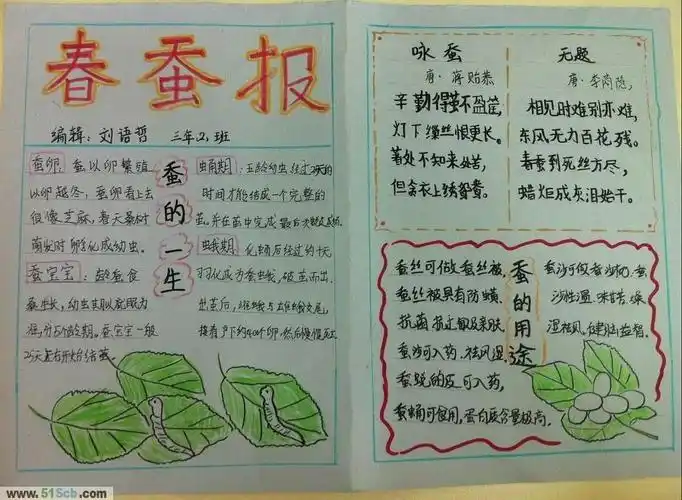 春蚕报
编辑：刘语哲 三年.2.班
蚕的一生
蚕卵：蚕以卵繁殖
以卵越冬，蚕卵看上去
很像芝麻，春天桑树
萌发时 卵孵化成幼虫。
蚕宝宝：
桑生长，幼虫
蚕宝宝一般
25天左右开始结茧
蛹期：五龄幼虫经过2天的
时间才能结成一个完整的
茧。并在茧中完成最后
蛾期：化蛹后经过约十天
羽化成为蚕蛾，破茧而出。
出茧后，雌蛾与雄蛾交尾，
接着产下约400个卵，然后慢慢死去
咏蚕
唐·蒋贻恭
辛勤得茧不盈筐，
灯下缫丝恨更长。
著处不知来处苦，
但贪衣上绣鸳鸯。
无题
唐·李商隐，
相见时难别亦难，
东风无力百花残。
春蚕到死丝方尽，
蜡炬成灰泪始干。
蚕的用途
蚕丝可做蚕丝被，
蚕丝被具有防螨、
抗菌 抗过敏及亲肤。
蚕沙可入药，祛风湿。
蚕蜕的皮可入药，
蚕蛹可食用，蛋白质含量极高。
蚕沙可做
湿祛风。健脑益智。
www.51Scb.com